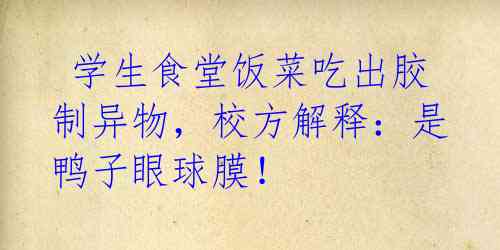 学生食堂饭菜吃出胶
制异物，校方解释：是
鸭子眼球膜！